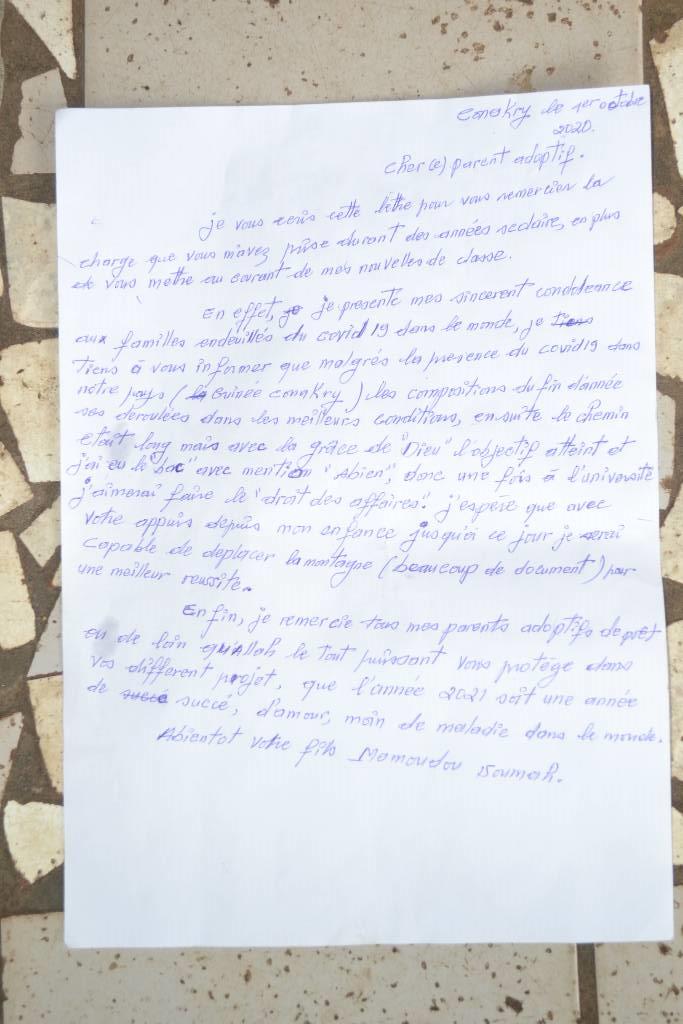 Conakry le 1er octobre
2020.
cher(e) parent adoptif.
je vous ecris cette lettre pour vous remercier la
charge que vous m'avez prise durant des années scolaire, en plus
de vous mettre au courant de mes nouvelles de classe.
En effet, je je presente mes sincerent condoleance
aux familles endeuillés du covid 19 dans le monde, je tiens
tiens à vous informer que malgrés la presence du covid19 dans
notre pays (la Guinée conakry) les compositions du fin d'année
ses déroulées dans les meilleurs conditions, ensuite le chemin
etait long mais avec la grâce de "Dieu" l'objectif atteint et
j'ai eu le "bac" avec mention "Abien", donc une fois à l'université
j'aimerai faire le "droit des affaires". j'espère que avec
votre appuis depuis mon enfance jusqu'à ce jour je serai
capable de deplacer la montagne (beaucoup de document) pour
une meilleur reussite.
Enfin, je remercie tous mes parents adoptifs de prêt
ou de loin qu'Allah le tout puissant vous protège dans
vos different projet, que l'année 2021 soit une année
de succé succé, d'amour, moin de maladie dans le monde.
Abientot votre fils Mamoudou Soumah.